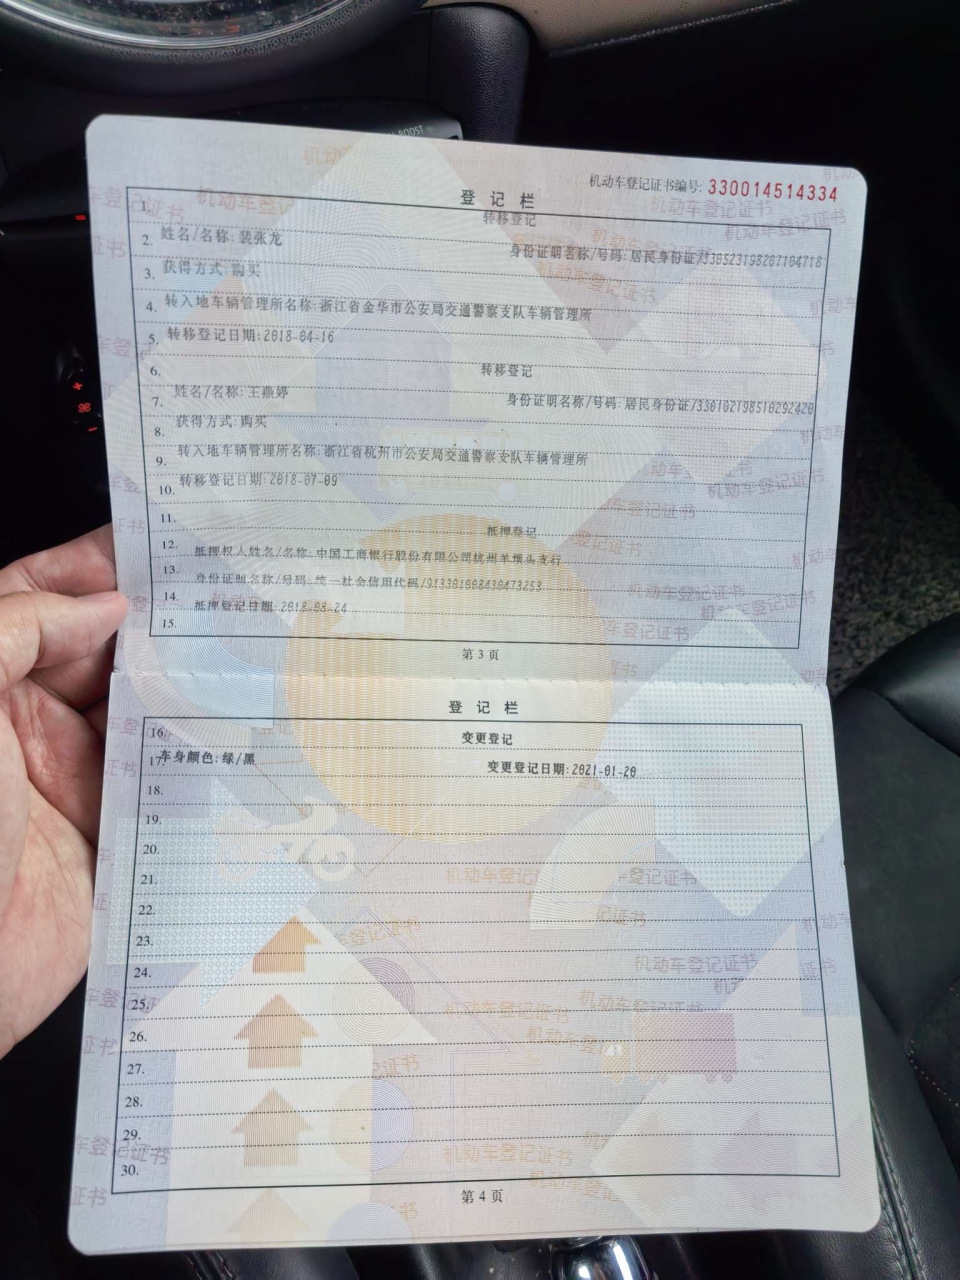 BOOST
机动车登记证书编号: 330014514334
登记栏
1. 转移登记
2. 姓名/名称: 裴张龙 身份证明名称/号码: 居民身份证/330523198207104718
3. 获得方式: 购买
4. 转入地车辆管理所名称: 浙江省金华市公安局交通警察支队车辆管理所
5. 转移登记日期: 2018-04-16
6. 转移登记
7. 姓名/名称: 王燕婷 身份证明名称/号码: 居民身份证/330102198510292420
8. 获得方式: 购买
9. 转入地车辆管理所名称: 浙江省杭州市公安局交通警察支队车辆管理所
10. 转移登记日期: 2018-07-09
11. 抵押登记
12. 抵押权人姓名/名称: 中国工商银行股份有限公司杭州羊坝头支行
13. 身份证明名称/号码: 统一社会信用代码/
14. 抵押登记日期: 2018-08-24
15.
第3页
登记栏
16. 变更登记
17. 车身颜色: 绿/黑 变更登记日期: 2021-01-20
18.
19.
20.
21.
22.
23.
24.
25.
26.
27.
28.
29.
30.
第4页